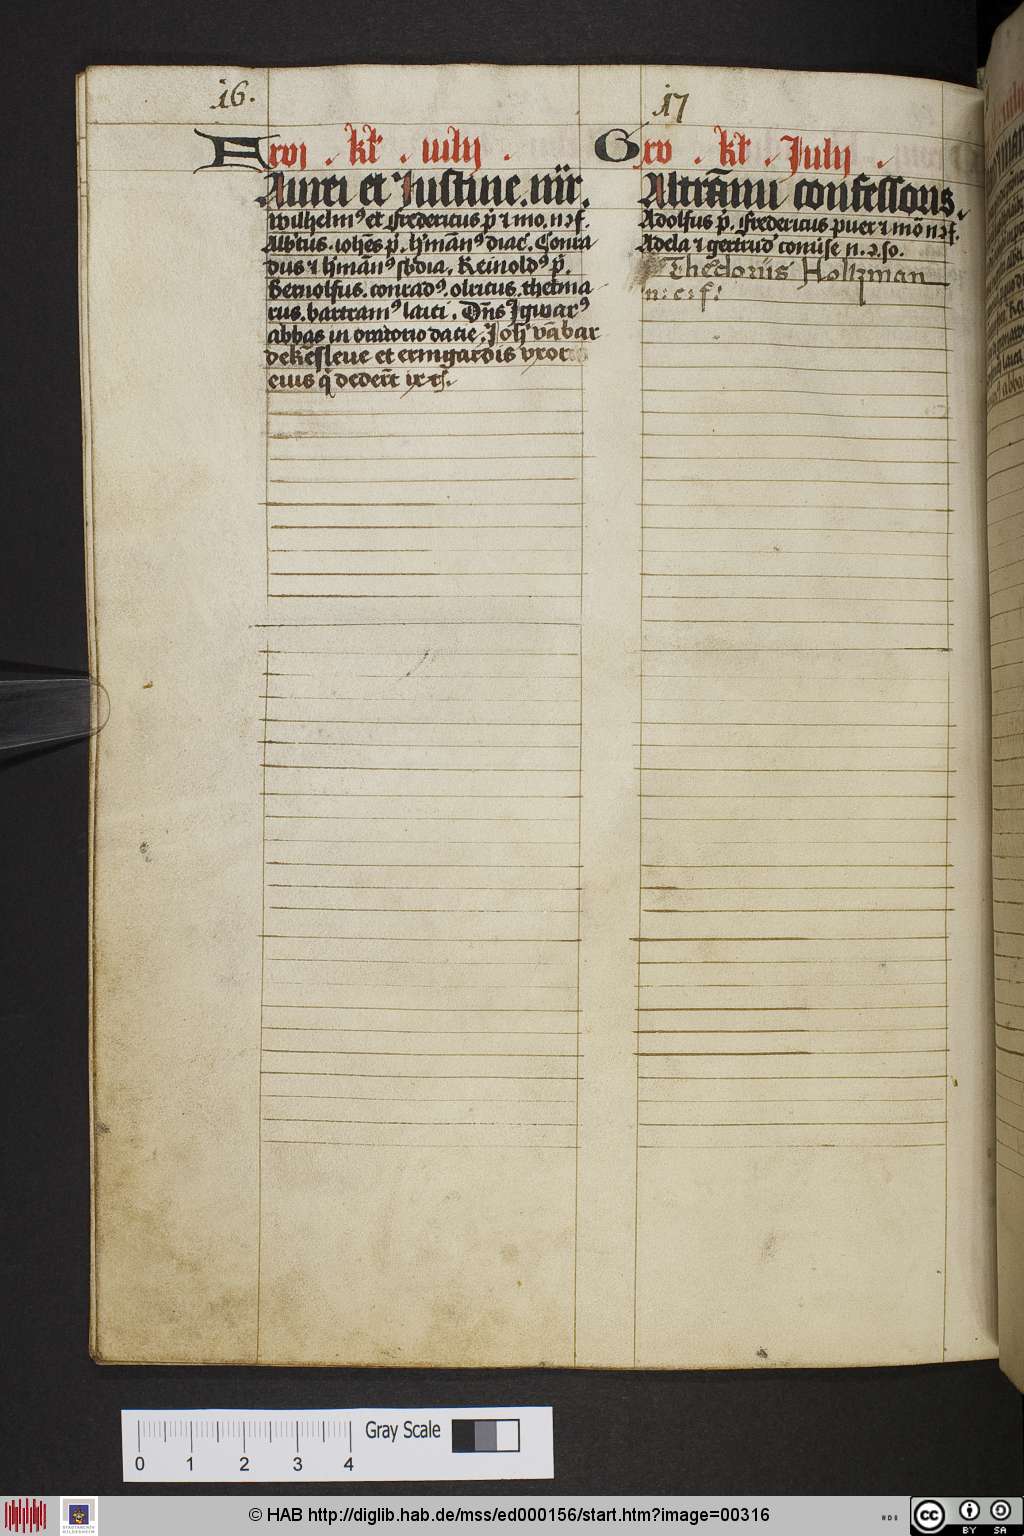 16.
F xvj . kł . iulij .
Aurei et Justine . mr̄.
Wilhelmꝰ et Fredericus p̄ ⁊ mo. n.ꝛ f.
Alb'tus . ioh̄es p̄. h'mānꝰ diac'. Conra
dus ⁊ h'mānꝰ sb'dia. Reinoldꝰ p̄.
Bernolfus. conradꝰ. olricus. thetma
rus. bartramꝰ laici. Dn̄s Igwarꝰ
abbas in oratorio dacie. Joh' vā bar
dekēsleue et ermgardis vxor
eius q̄ dederūt ix ts.
17
G xv . kł . Julij .
Altrāmi confessoris.
Adolfus p̄. Fredericus puer ⁊ mō n.ꝛ f.
Adela ⁊ gertrud' conuīse n. ꝛ. so.
Thedorus Holtzman
n: c: f:
Gray Scale
0 1 2 3 4
© HAB http://diglib.hab.de/mss/ed000156/start.htm?image=00316
cc BY SA